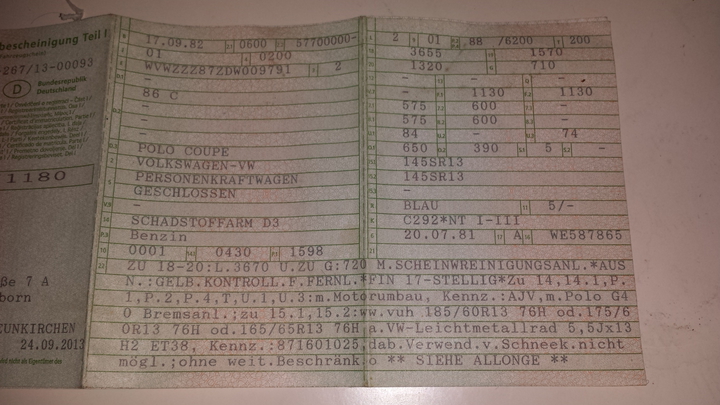 bescheinigung Teil I
267/13-00093
D
Bundesrepublik
Deutschland
1180
ße 7 A
born
EUNKIRCHEN
24.09.2013
17.09.82 0600 57700000-
01 0200
WVWZZZ87ZDW009791 2
-
86 C
-
-
-
POLO COUPE
VOLKSWAGEN-VW
PERSONENKRAFTWAGEN
GESCHLOSSEN
-
SCHADSTOFFARM D3
Benzin
0001 0430 1598
2 01 88 /6200 200
3655 1570
1320 710
- - -
- 1130 1130
575 600 -
575 600 -
84 - 74
650 390 5 -
145SR13
145SR13
-
BLAU 5/-
C292*NT I-III
20.07.81 A WE587865
ZU 18-20:L.3670 U.ZU G:720 M.SCHEINWREINIGUNGSANL.*AUS
N.:GELB.KONTROLL.F.FERNL.*FIN 17-STELLIG*Zu 14,14.1,P.
1,P.2,P.4,T,U.1,U.3:m.Motorumbau, Kennz.:AJV,m.Polo G4
0 Bremsanl.;zu 15.1,15.2:ww.vuh 185/60R13 76H od.175/6
0R13 76H od.165/65R13 76H a.VW-Leichtmetallrad 5,5Jx13
H2 ET38, Kennz.:871601025,dab.Verwend.v.Schneek.nicht
mögl.;ohne weit.Beschränk.o ** SIEHE ALLONGE **